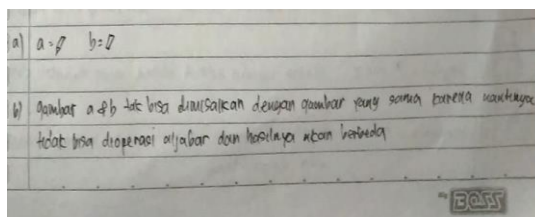 a) a = ▯ b = ▯
b) gambar a & b tak bisa dimisalkan dengan gambar yang sama karena nantinya
tidak bisa dioperasi aljabar dan hasilnya akan berbeda
BOSS